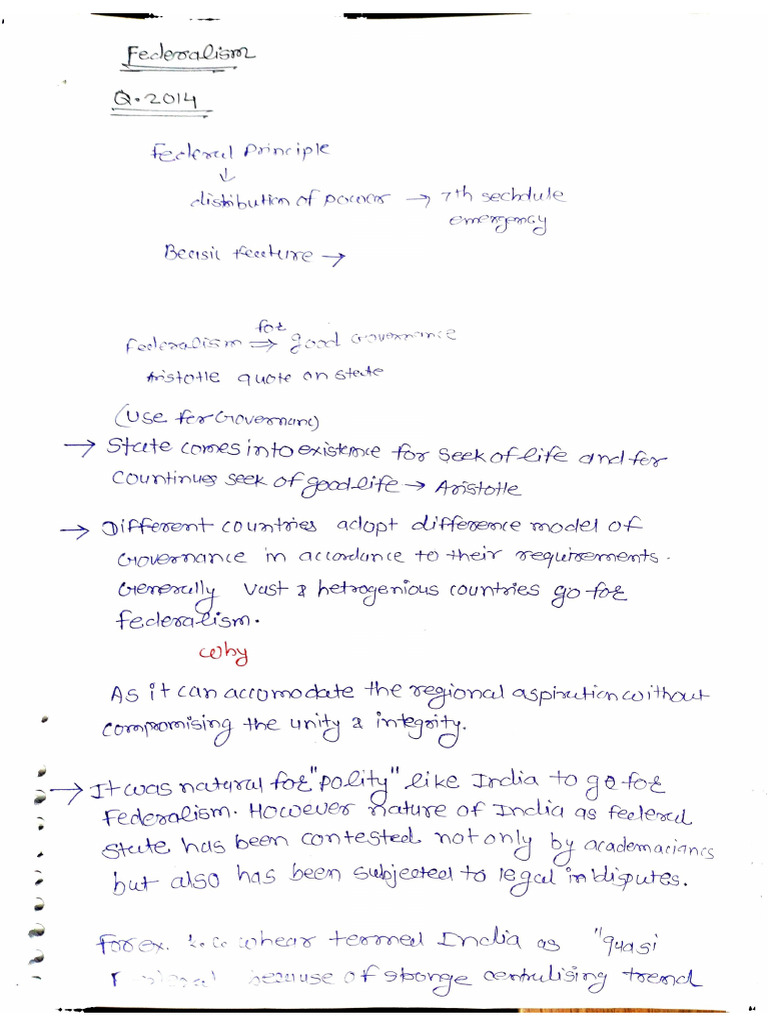 Federalism
Q. 2014
Federal Principle
↓
distribution of power → 7th sechdule
emergency
Basic feature →
for
Federalism ⇒ good Governance
Aristotle quote on state
(Use for Governanc)
→ State comes into existence for seek of life and for
countinues seek of good life → Aristotle
→ Different countries adopt difference model of
Governance in accordance to their requirements.
Generally vast & hetrogenious countries go for
federalism.
Why
As it can accomodate the regional aspiration without
compromising the unity & integrity.
→ It was natural for "polity" like India to go for
Federalism. However nature of India as federal
state has been contested not only by academacians
but also has been subjected to legal in disputes.
For ex. K.C. whear termed India as "quasi
because of stronge centralising trend